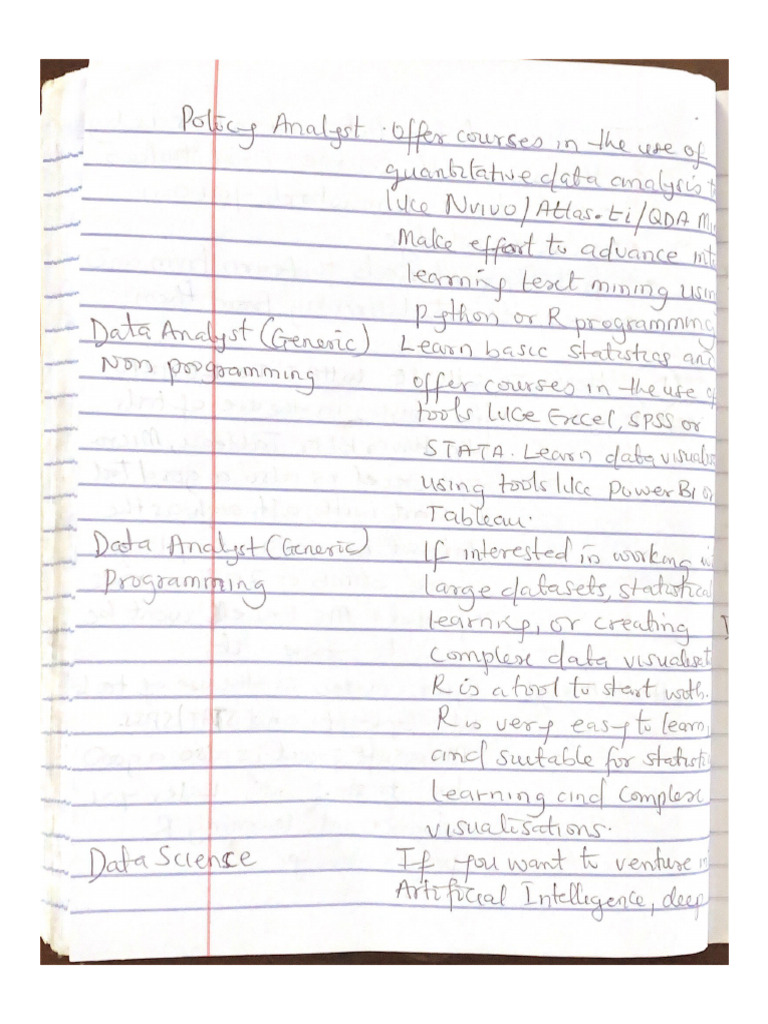 Policy Analyst : Offer courses in the use of
quantitative data analysis t
like Nvivo/Atlas.ti/QDA Mi
Make effort to advance into
learning text mining usin
Python or R programming
Data Analyst (Generic) Learn basic statistics and
Non programming offer courses in the use of
tools like Excel, SPSS or
STATA. Learn data visualis
using tools like PowerBI or
Tableau.
Data Analyst (Generic) If interested in working wi
Programming large datasets, statistical
learning, or creating
complex data visualisat
R is a tool to start with.
R is very easy to learn,
and suitable for statisti
learning and complex
visualisations.
Data Science If you want to venture in
Artificial Intelligence, deep